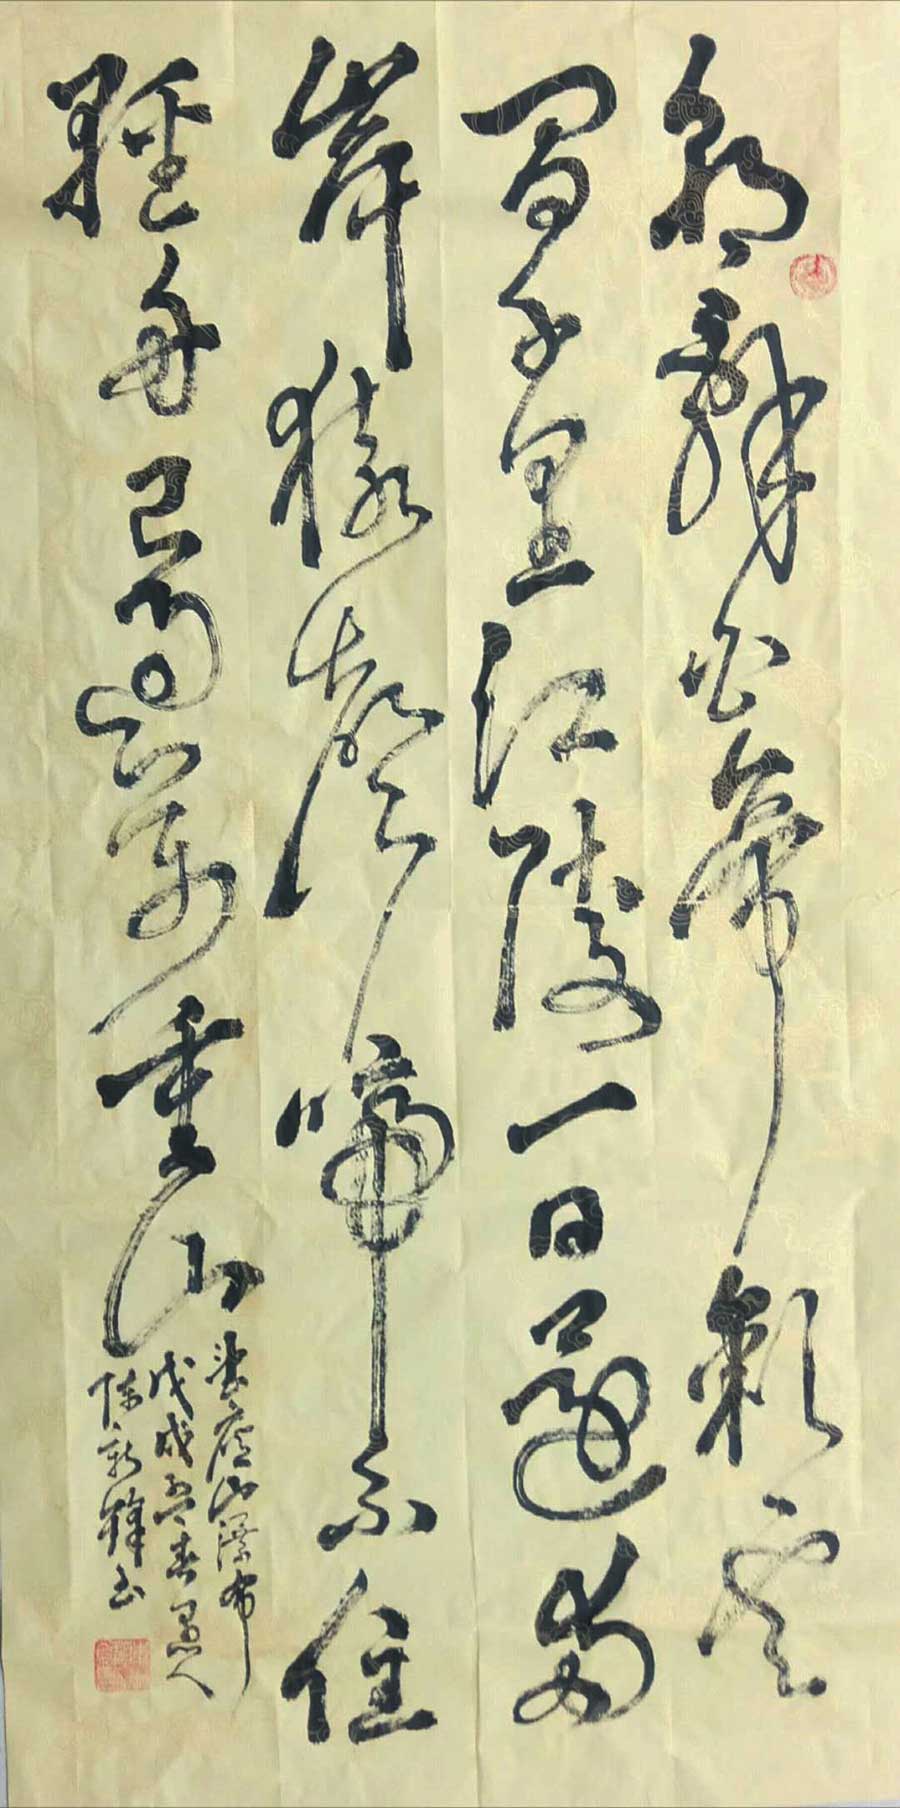 朝辭白帝彩雲
間千里江陵一日還兩
岸猿聲啼不住
輕舟已過萬重山
望廬山瀑布
戊戌孟春愚人
陈新書